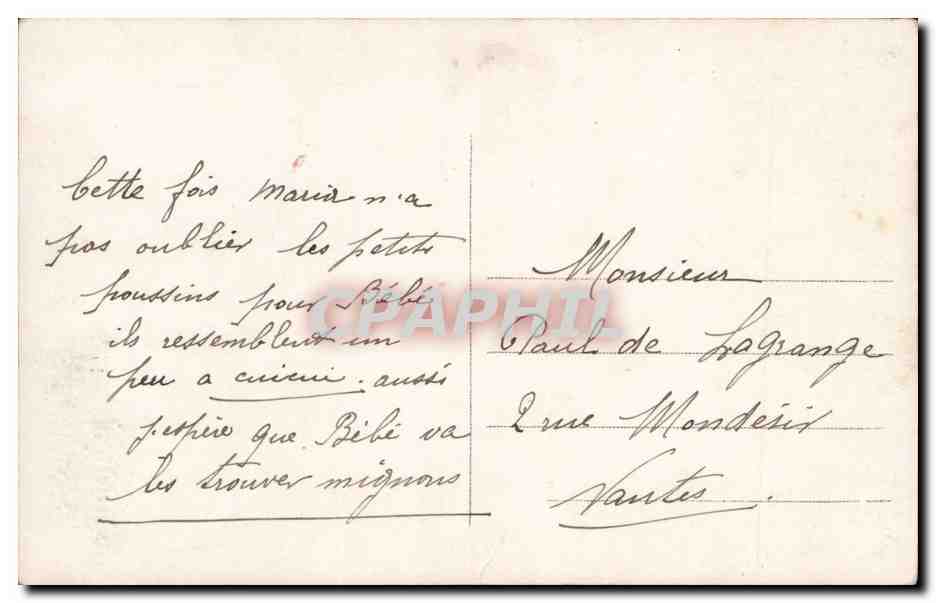 Cette fois Maria n'a
pas oublier les petits
poussins pour Bébé
ils ressemblent un
peu a cuicui. aussi
j'espère que Bébé va
les trouver mignons
Monsieur
Paul de Lagrange
2 rue Mondésir
Nantes.
CPAPHIL